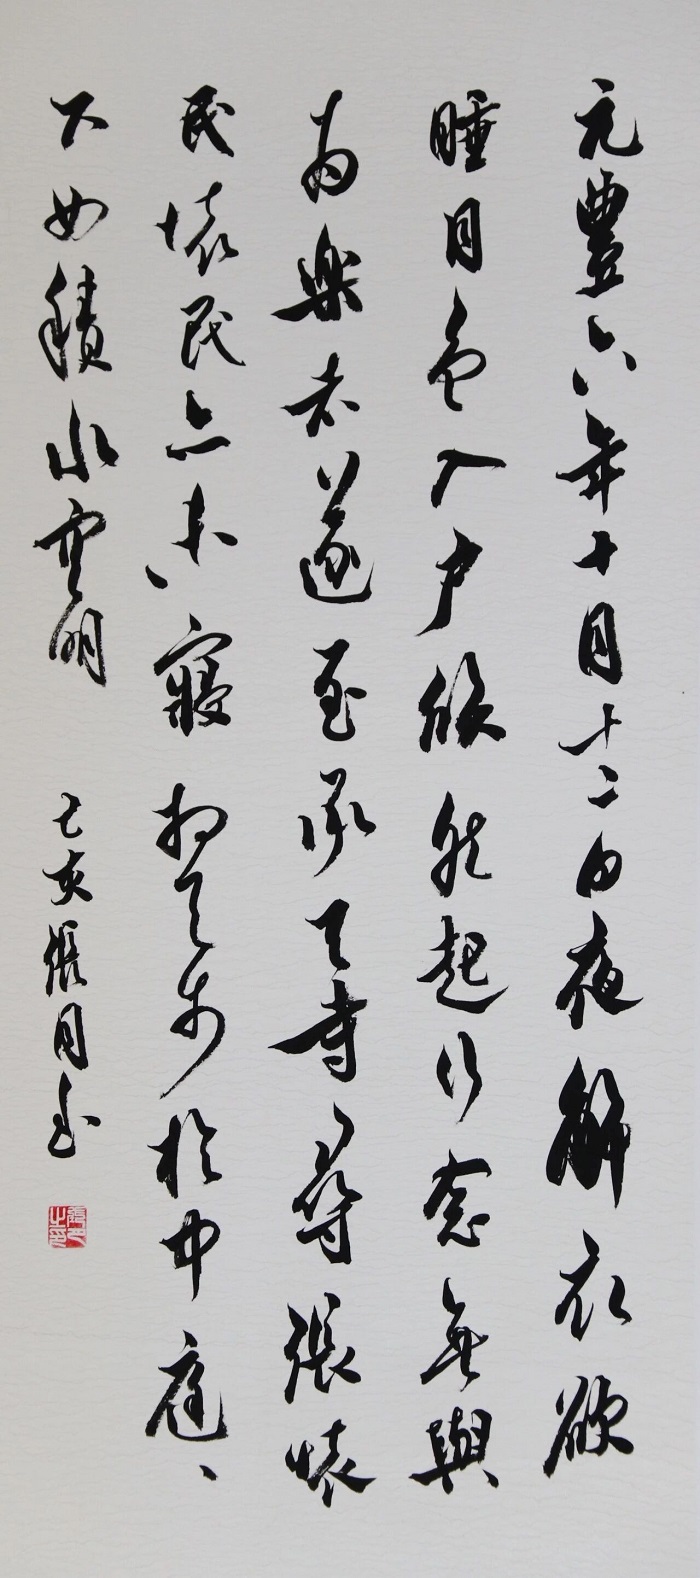 元豐六年十月十二日夜解衣欲
睡月色入户欣然起行念無與
為樂者遂至承天寺尋張懷
民懷民亦未寢相與步於中庭、
下如積水空明
己亥張月書